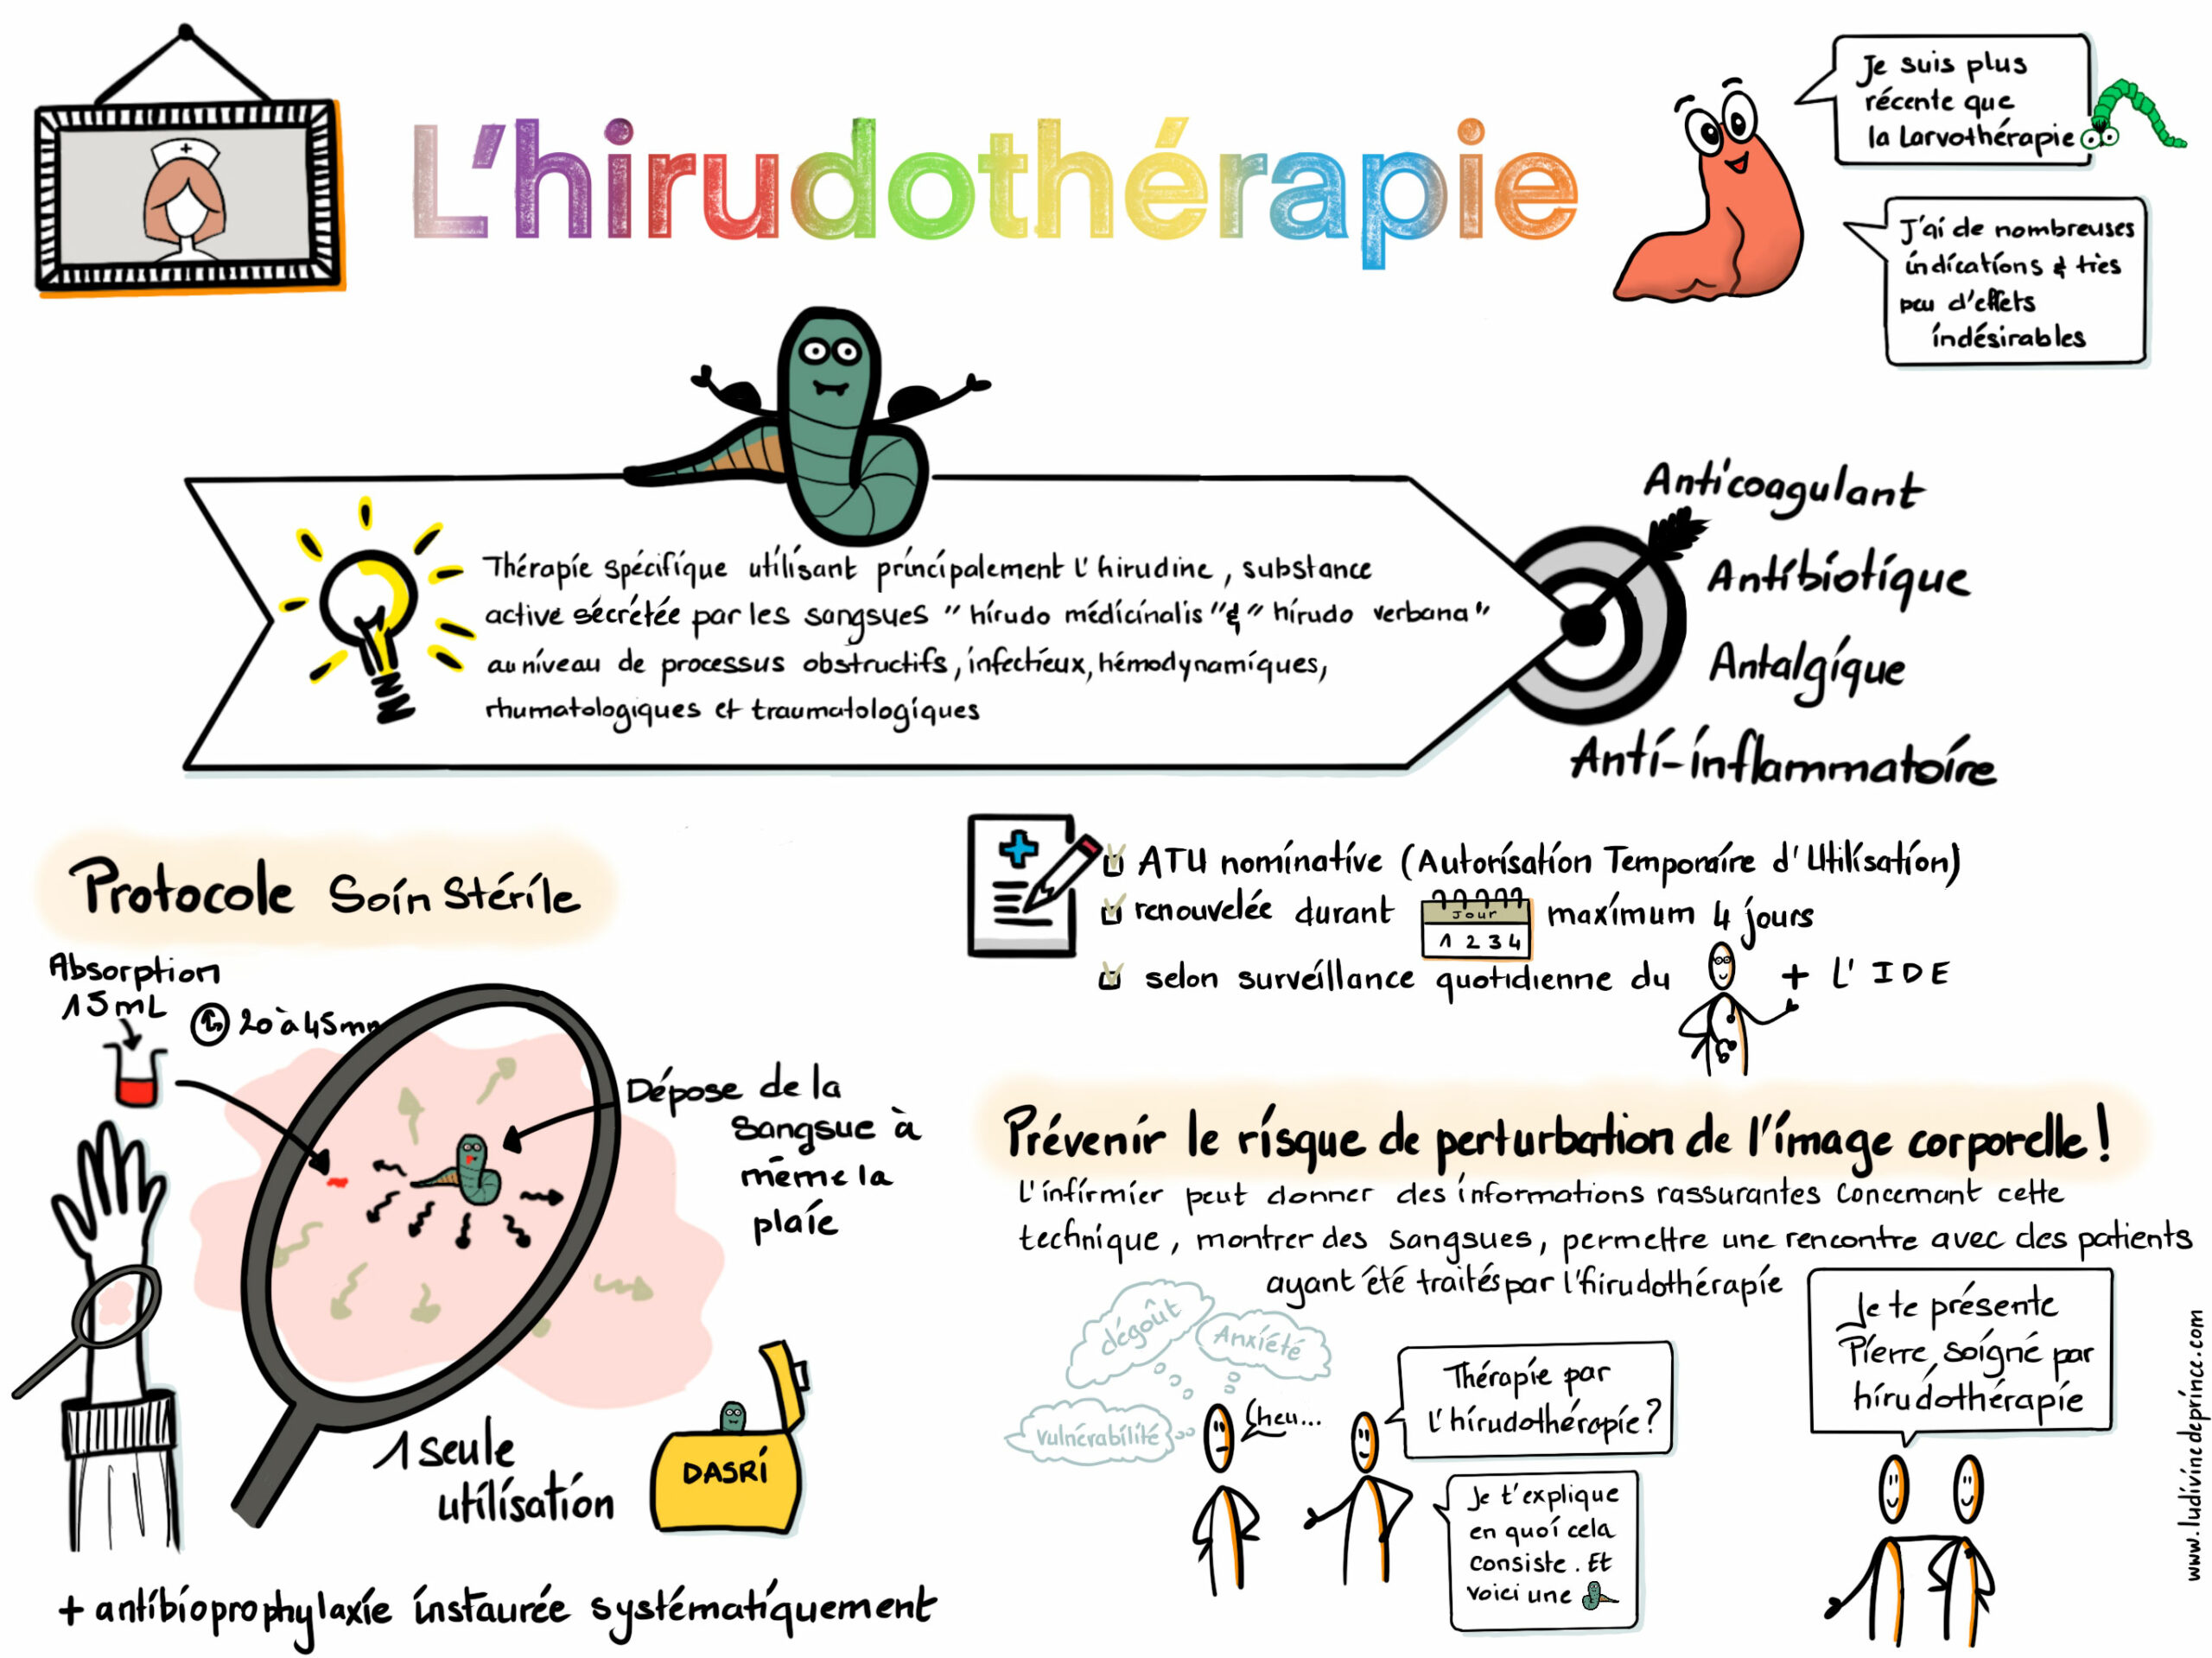 L'hirudothérapie
Je suis plus
récente que
la Larvothérapie
J'ai de nombreuses
indications & très
peu d'effets
indésirables
Thérapie spécifique utilisant principalement l'hirudine, substance
active sécrétée par les sangsues "hirudo médicinalis" & "hirudo verbana"
au niveau de processus obstructifs, infectieux, hémodynamiques,
rhumatologiques et traumatologiques
Anticoagulant
Antibiotique
Antalgique
Anti-inflammatoire
Protocole Soin Stérile
Absorption
15mL
20 à 45mn
Dépose de la
sangsue à
même la
plaie
1 seule
utilisation
DASRI
+ antibioprophylaxie instaurée systématiquement
ATU nominative (Autorisation Temporaire d'Utilisation)
renouvelée durant
Jour
1 2 3 4
maximum 4 jours
selon surveillance quotidienne du + L'IDE
Prévenir le risque de perturbation de l'image corporelle!
L'infirmier peut donner des informations rassurantes concernant cette
technique, montrer des sangsues, permettre une rencontre avec des patients
ayant été traités par l'hirudothérapie
dégoût
Anxiété
vulnérabilité
Cheu...
Thérapie par
l'hirudothérapie?
Je t'explique
en quoi cela
consiste. Et
voici une
Je te présente
Pierre, soigné par
hirudothérapie
www.ludivinedeprince.com